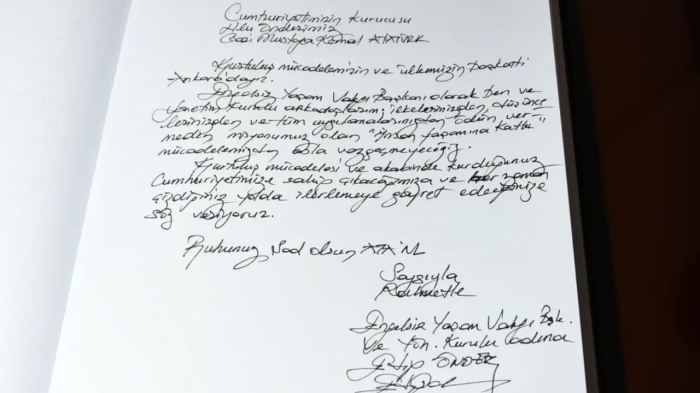 Cumhuriyetimizin Kurucusu
Ulu Önderimiz
Gazi Mustafa Kemal ATATÜRK
Kurtuluş mücadelemizin ve ülkemizin başkenti
Ankara'dayız.
Engelsiz Yaşam Vakfı Başkanı olarak ben ve
Yönetim Kurulu arkadaşlarım; ilkelerinizden, düşünce
lerinizden ve tüm uygulamalarınızdan ödün ver-
meden misyonumuz olan "İnsan Yaşamına Katkı"
mücadelemizden asla vazgeçmeyeceğiz.
Kurtuluş mücadelesi ve akabinde kurduğunuz
Cumhuriyetimize sahip çıkacağımıza ve her zaman
çizdiğiniz yolda ilerlemeye gayret edeceğimize
söz veriyoruz.
Ruhunuz Şad olsun ATA'M
Saygıyla
Rahmetle
Engelsiz Yaşam Vakfı Bşk.
Ve Yön. Kurulu adına
ÖNDER